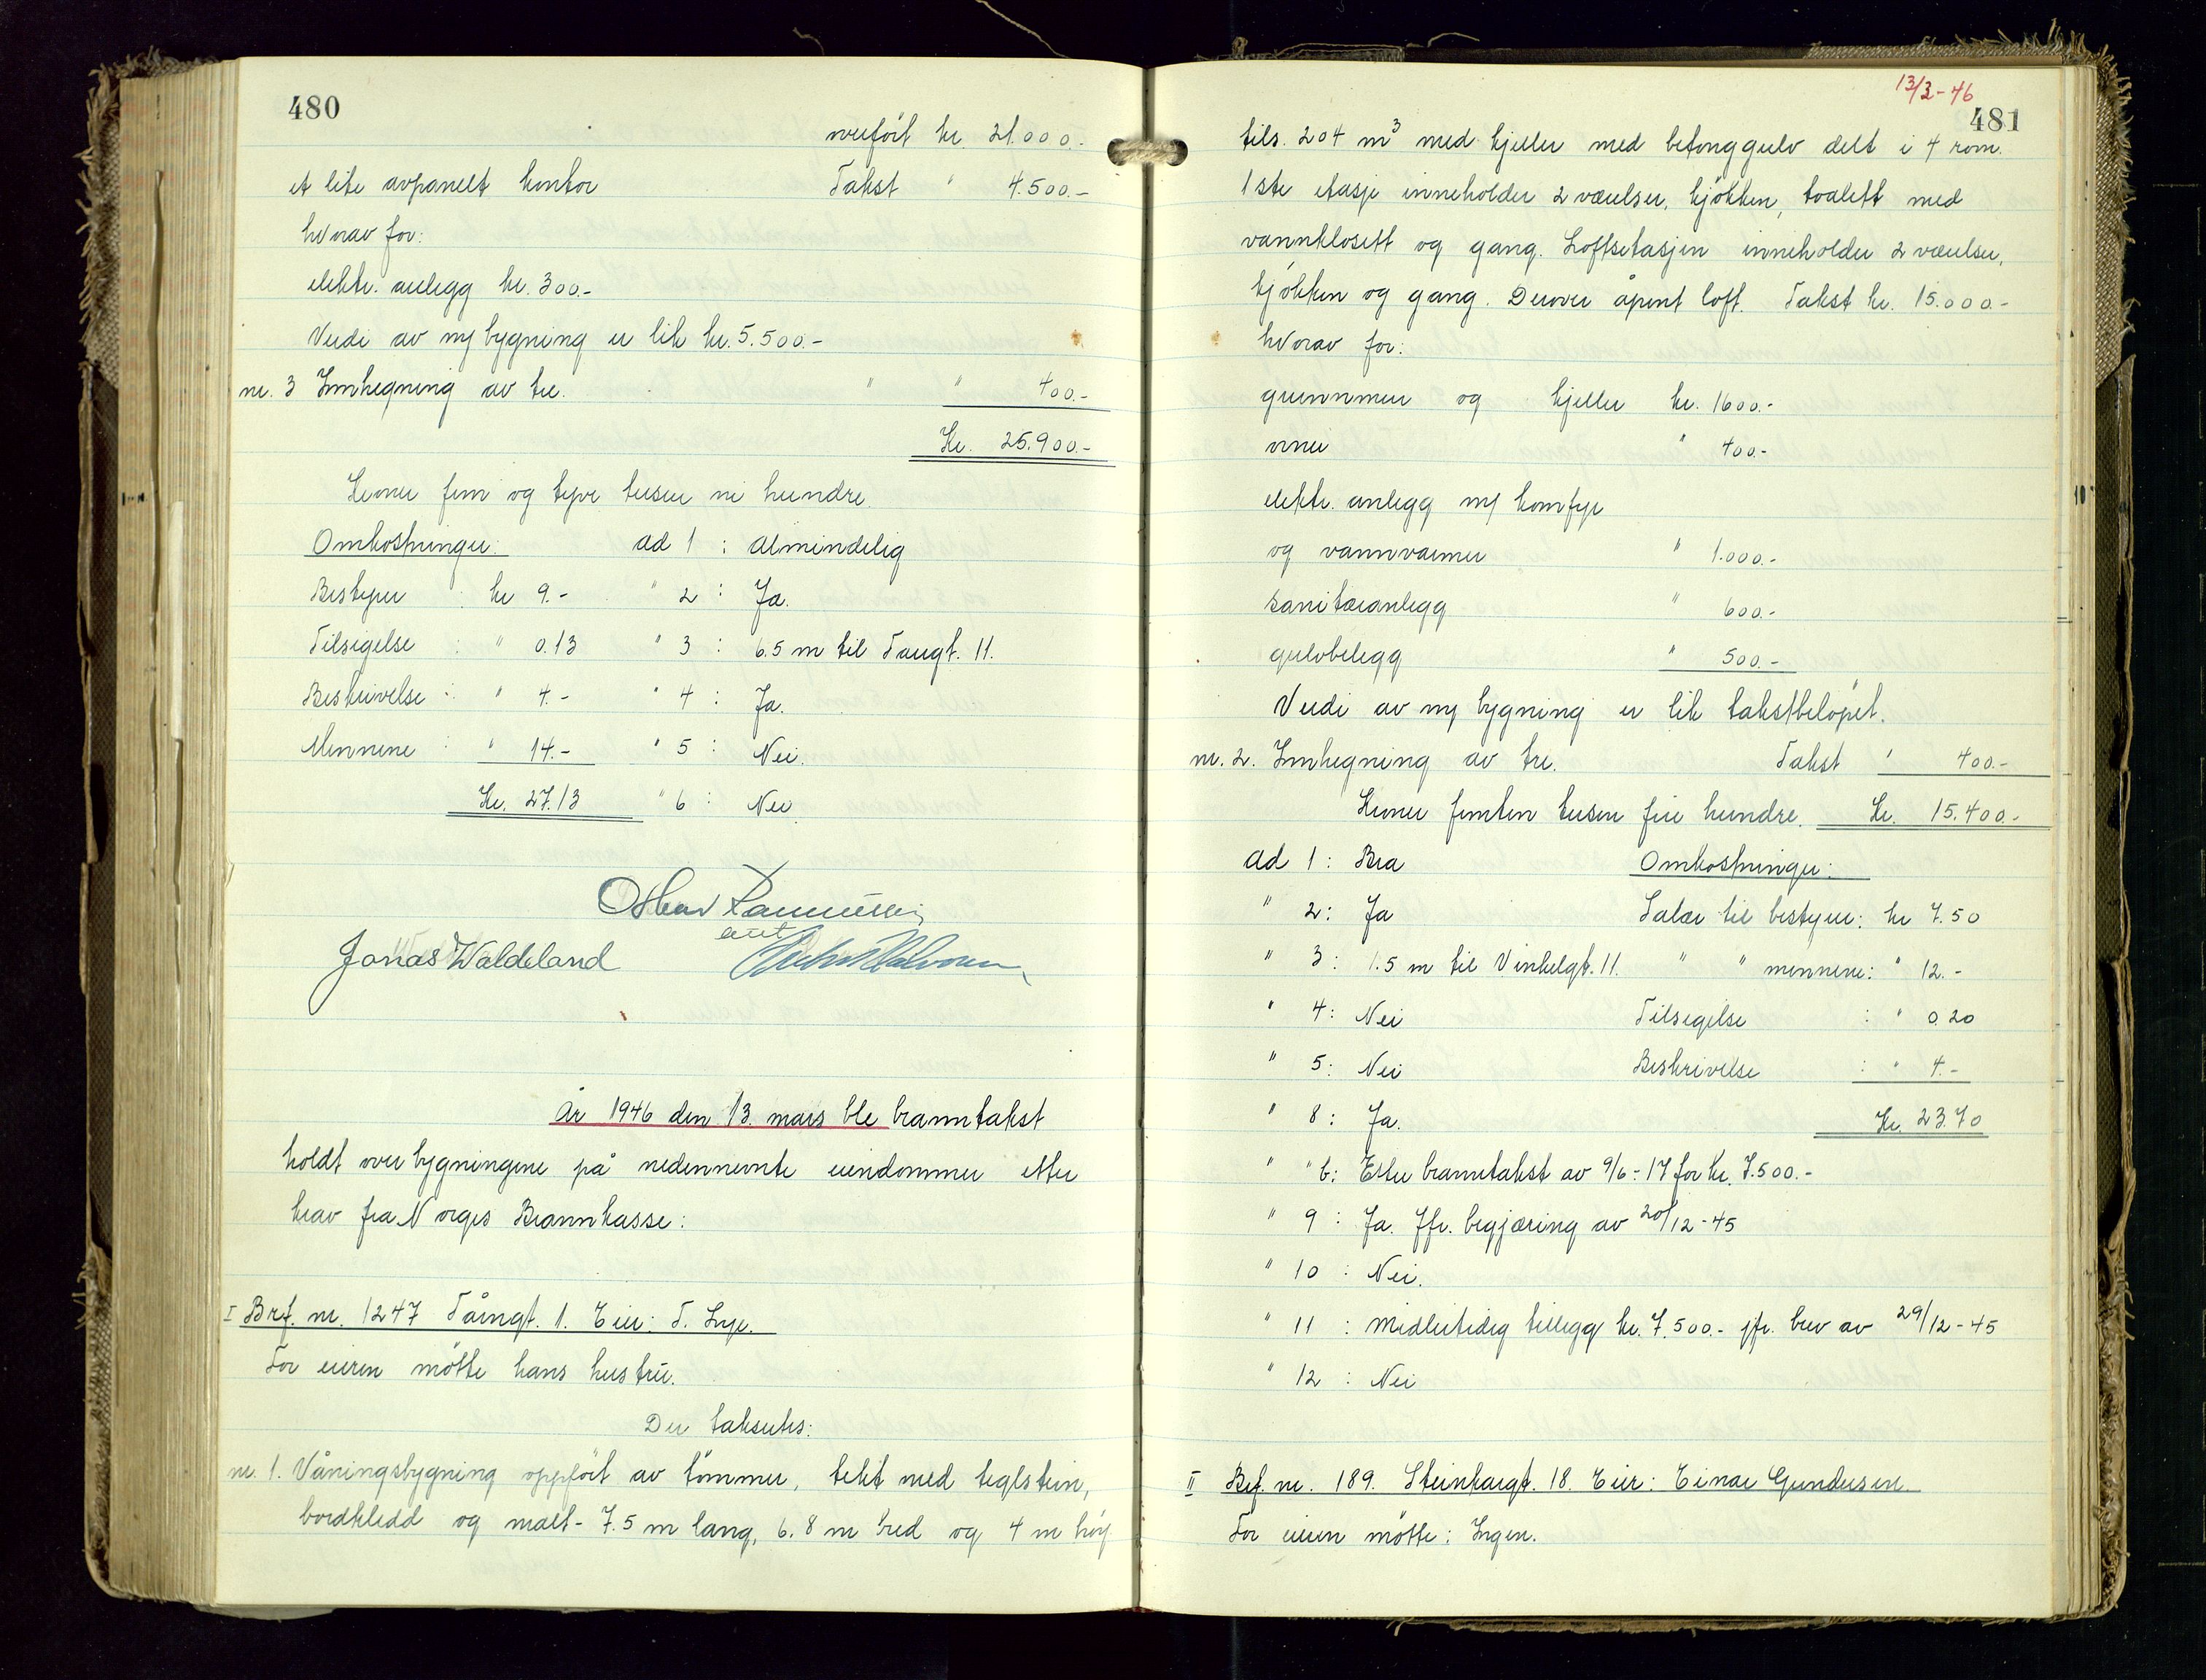 480
overført kr. 21.000.-
et lite avpanelt kontor Takst " 4.500.-
hvorav for:
elektr. anlegg kr. 300.-
Verdi av ny bygning er lik kr. 5.500.-
nr. 3 Innhegning av tre. " " 400.-
Kr. 25.900.-
Kroner fem og tyve tusen ni hundre.
Omkostninger: ad 1 : Almindelig
Bestyrer : kr 9.- " 2 : Ja.
Tilsigelse : " 0.13 " 3 : 6.5 m til Taugt. 11.
Beskrivelse : " 4.- " 4 : Ja.
Mennene : " 14.- " 5 : Nei.
Kr. 27.13 " 6 : Nei.
Oskar Rasmussen
Jonas Waldeland
År 1946 den 13. mars ble branntakst
holdt over bygningene på nedennevnte eiendommer etter
krav fra Norges Brannkasse:
I Brf. nr. 1247 Tårngt. 1. Eier: T. Lye.
For eieren møtte hans hustru.
Der takseres:
nr. 1. Våningsbygning oppført av tömmer, tekt med teglstein,
bordkledd og malt - 7.5 m lang, 6.8 m bred og 4 m høy
13/3-46
481
tils. 204 m³ med kjeller med betonggulv delt i 4 rom.
1ste etasje inneholder 2 værelser, kjökken, toalett med
vannklosett og gang. Loftsetasjen inneholder 2 værelser,
kjökken og gang. Derover åpent loft. Takst kr. 15.000.-
hvorav for:
grunnmur og kjeller kr. 1600.-
ovner " 400.-
elektr. anlegg m/ komfyr
og vannvarmer " 1.000.-
sanitæranlegg " 600.-
gulvbelegg " 500.-
Verdi av ny bygning er lik takstbelöpet.
nr. 2. Innhegning av tre. Takst " 400.-
Kroner femten tusen fire hundre. Kr. 15.400.-
ad 1 : Bra Omkostninger:
" 2 : Ja Salær til bestyrer: kr 7.50
" 3 : 1.5 m til Vinkelgt. 11. " " mennene: " 12.-
" 4 : Nei Tilsigelse : " 0.20
" 5 : Nei Beskrivelse : " 4.-
" 8 : Ja. Kr. 23.70
" " b: Etter branntakst av 9/6-17 for kr. 7.500.-
" 9 : Ja. Jfr. begjæring av 20/12-45
" 10 : Nei.
" 11 : Midlertidig tillegg kr. 7.500.- jfr. brev av 29/12-45
" 12 : Nei
II Brf. nr. 189. Steinkargt. 18. Eier: Einar Gundersen.
For eieren møtte: Ingen.